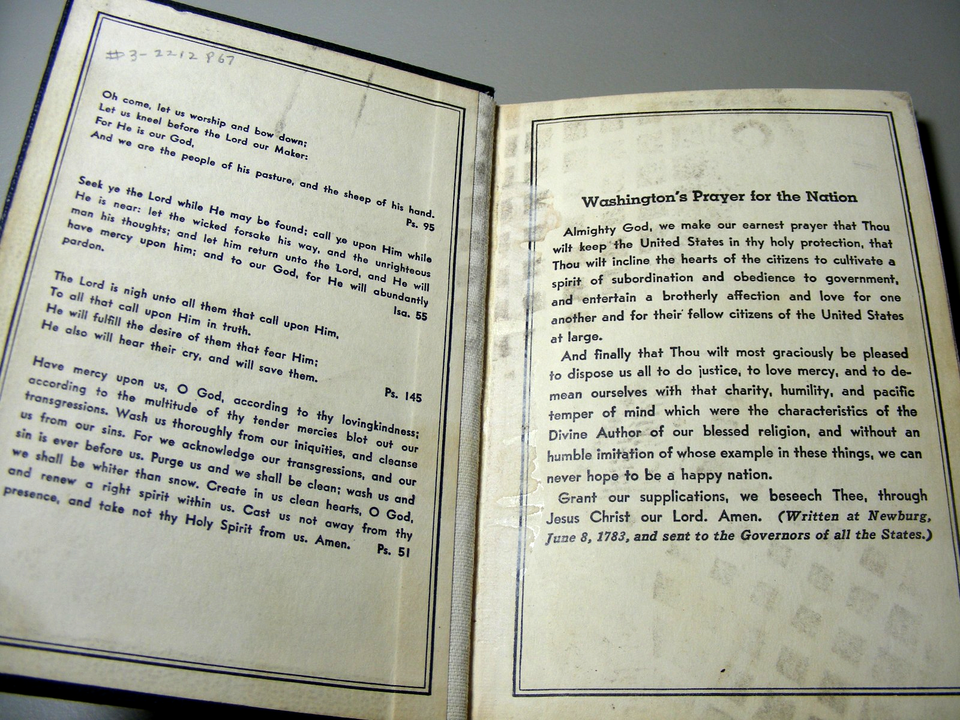 #3-2212 P67
Oh come, let us worship and bow down;
Let us kneel before the Lord our Maker:
For He is our God,
And we are the people of his pasture, and the sheep of his hand.
Ps. 95
Seek ye the Lord while He may be found; call ye upon Him while
He is near: let the wicked forsake his way, and the unrighteous
man his thoughts; and let him return unto the Lord, and He will
have mercy upon him; and to our God, for He will abundantly
pardon.
Isa. 55
The Lord is nigh unto all them that call upon Him,
To all that call upon Him in truth.
He will fulfill the desire of them that fear Him;
He also will hear their cry, and will save them.
Ps. 145
Have mercy upon us, O God, according to thy lovingkindness;
according to the multitude of thy tender mercies blot out our
transgressions. Wash us thoroughly from our iniquities, and cleanse
us from our sins. For we acknowledge our transgressions, and our
sin is ever before us. Purge us and we shall be clean; wash us and
we shall be whiter than snow. Create in us clean hearts, O God,
and renew a right spirit within us. Cast us not away from thy
presence, and take not thy Holy Spirit from us. Amen. Ps. 51
Washington's Prayer for the Nation
Almighty God, we make our earnest prayer that Thou
wilt keep the United States in thy holy protection, that
Thou wilt incline the hearts of the citizens to cultivate a
spirit of subordination and obedience to government,
and entertain a brotherly affection and love for one
another and for their fellow citizens of the United States
at large.
And finally that Thou wilt most graciously be pleased
to dispose us all to do justice, to love mercy, and to de-
mean ourselves with that charity, humility, and pacific
temper of mind which were the characteristics of the
Divine Author of our blessed religion, and without an
humble imitation of whose example in these things, we can
never hope to be a happy nation.
Grant our supplications, we beseech Thee, through
Jesus Christ our Lord. Amen. (Written at Newburg,
June 8, 1783, and sent to the Governors of all the States.)